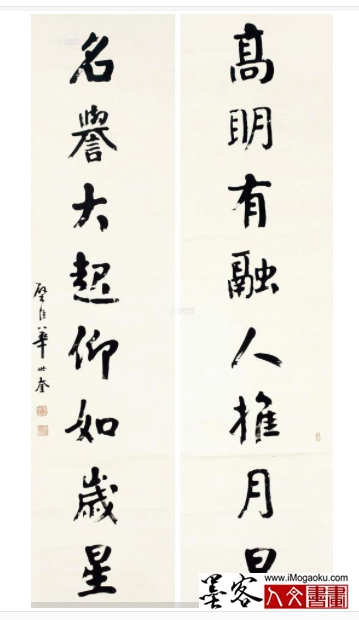 髙明有融人推月旦
名譽大起仰如歲星
璧臣華世奎
墨客
www.iMogaoku.com
人文書畫